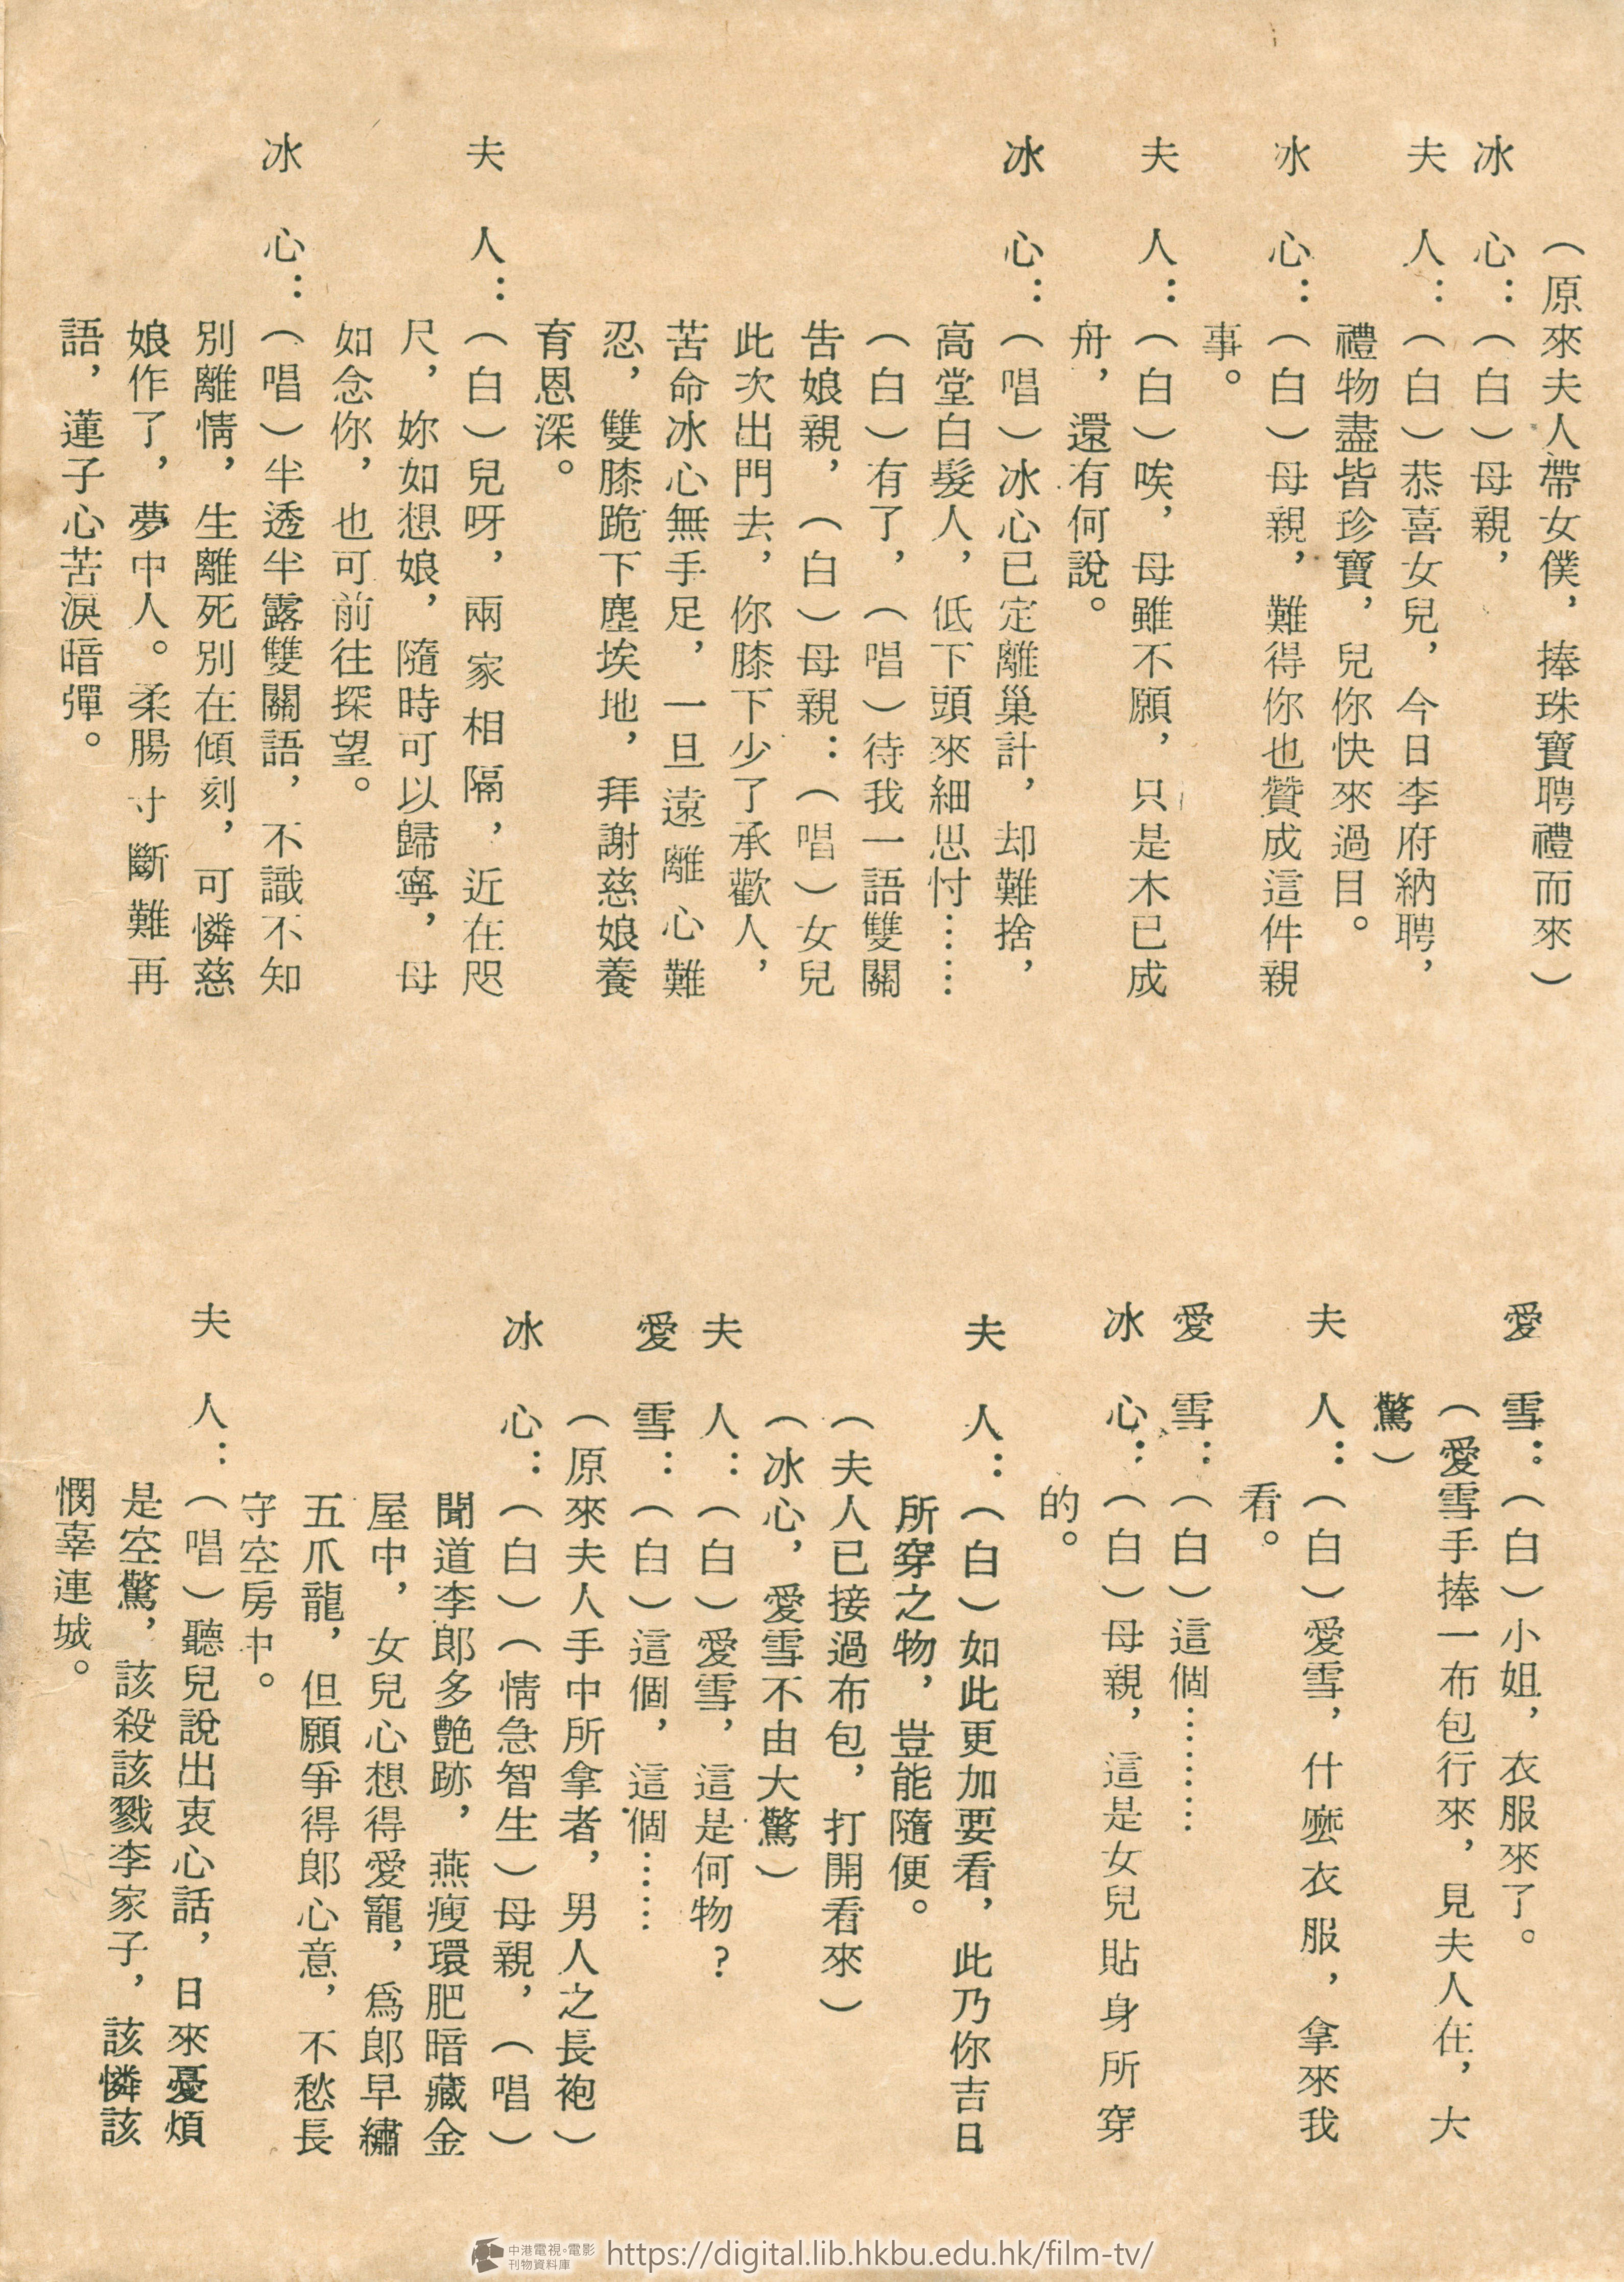 （原來夫人帶女僕，捧珠寶聘禮而來）
冰心：（白）母親，
夫人：（白）恭喜女兒，今日李府納聘，
禮物盡皆珍寶，兒你快來過目。
冰心：（白）母親，難得你也贊成這件親
事。
夫人：（白）唉，母雖不願，只是木已成
舟，還有何說。
冰心：（唱）冰心已定離巢計，却難捨，
高堂白髮人，低下頭來細思忖……
（白）有了，（唱）待我一語雙關
告娘親，（白）母親：（唱）女兒
此次出門去，你膝下少了承歡人，
苦命冰心無手足，一旦遠離心難
忍，雙膝跪下塵埃地，拜謝慈娘養
育恩深。
夫人：（白）兒呀，兩家相隔，近在咫
尺，妳如想娘，隨時可以歸寧，母
如念你，也可前往探望。
冰心：（唱）半透半露雙關語，不識不知
別離情，生離死別在傾刻，可憐慈
娘作了，夢中人。柔腸寸斷難再
語，蓮子心苦淚暗彈。
愛雪：（白）小姐，衣服來了。
（愛雪手捧一布包行來，見夫人在，大
驚）
夫人：（白）愛雪，什麼衣服，拿來我
看。
愛雪：（白）這個…………
冰心：（白）母親，這是女兒貼身所穿
的。
夫人：（白）如此更加要看，此乃你吉日
所穿之物，豈能隨便。
（夫人已接過布包，打開看來）
（冰心，愛雪不由大驚）
夫人：（白）愛雪，這是何物？
愛雪：（白）這個，這個……
（原來夫人手中所拿者，男人之長袍）
冰心：（白）（情急智生）母親，（唱）
聞道李郎多艷跡，燕瘦環肥暗藏金
屋中，女兒心想得愛寵，爲郎早繡
五爪龍，但願爭得郎心意，不愁長
守空房中。
夫人：（唱）聽兒說出衷心話，日來憂煩
是空驚，該殺該戮李家子，該憐該
憫辜連城。
中港電視·電影
刊物資料庫
https://digital.lib.hkbu.edu.hk/film-tv/